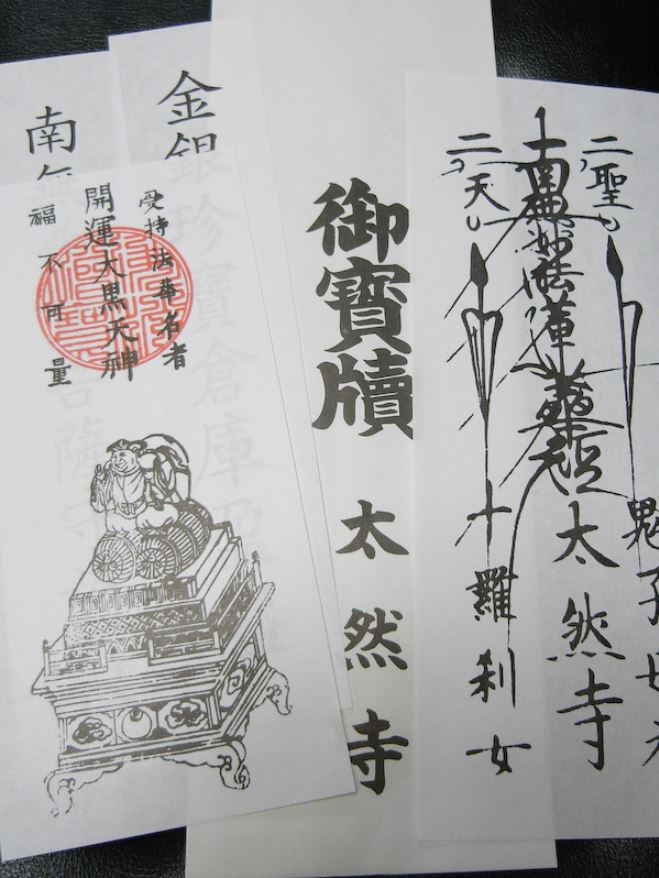 二聖
鬼子母
南無妙法蓮華
太然寺
二天
十羅刹女
御寶牘 太然寺
金銀珍寶倉庫
受持法華名者
開運大黒天神
福不可量
南無
菩薩